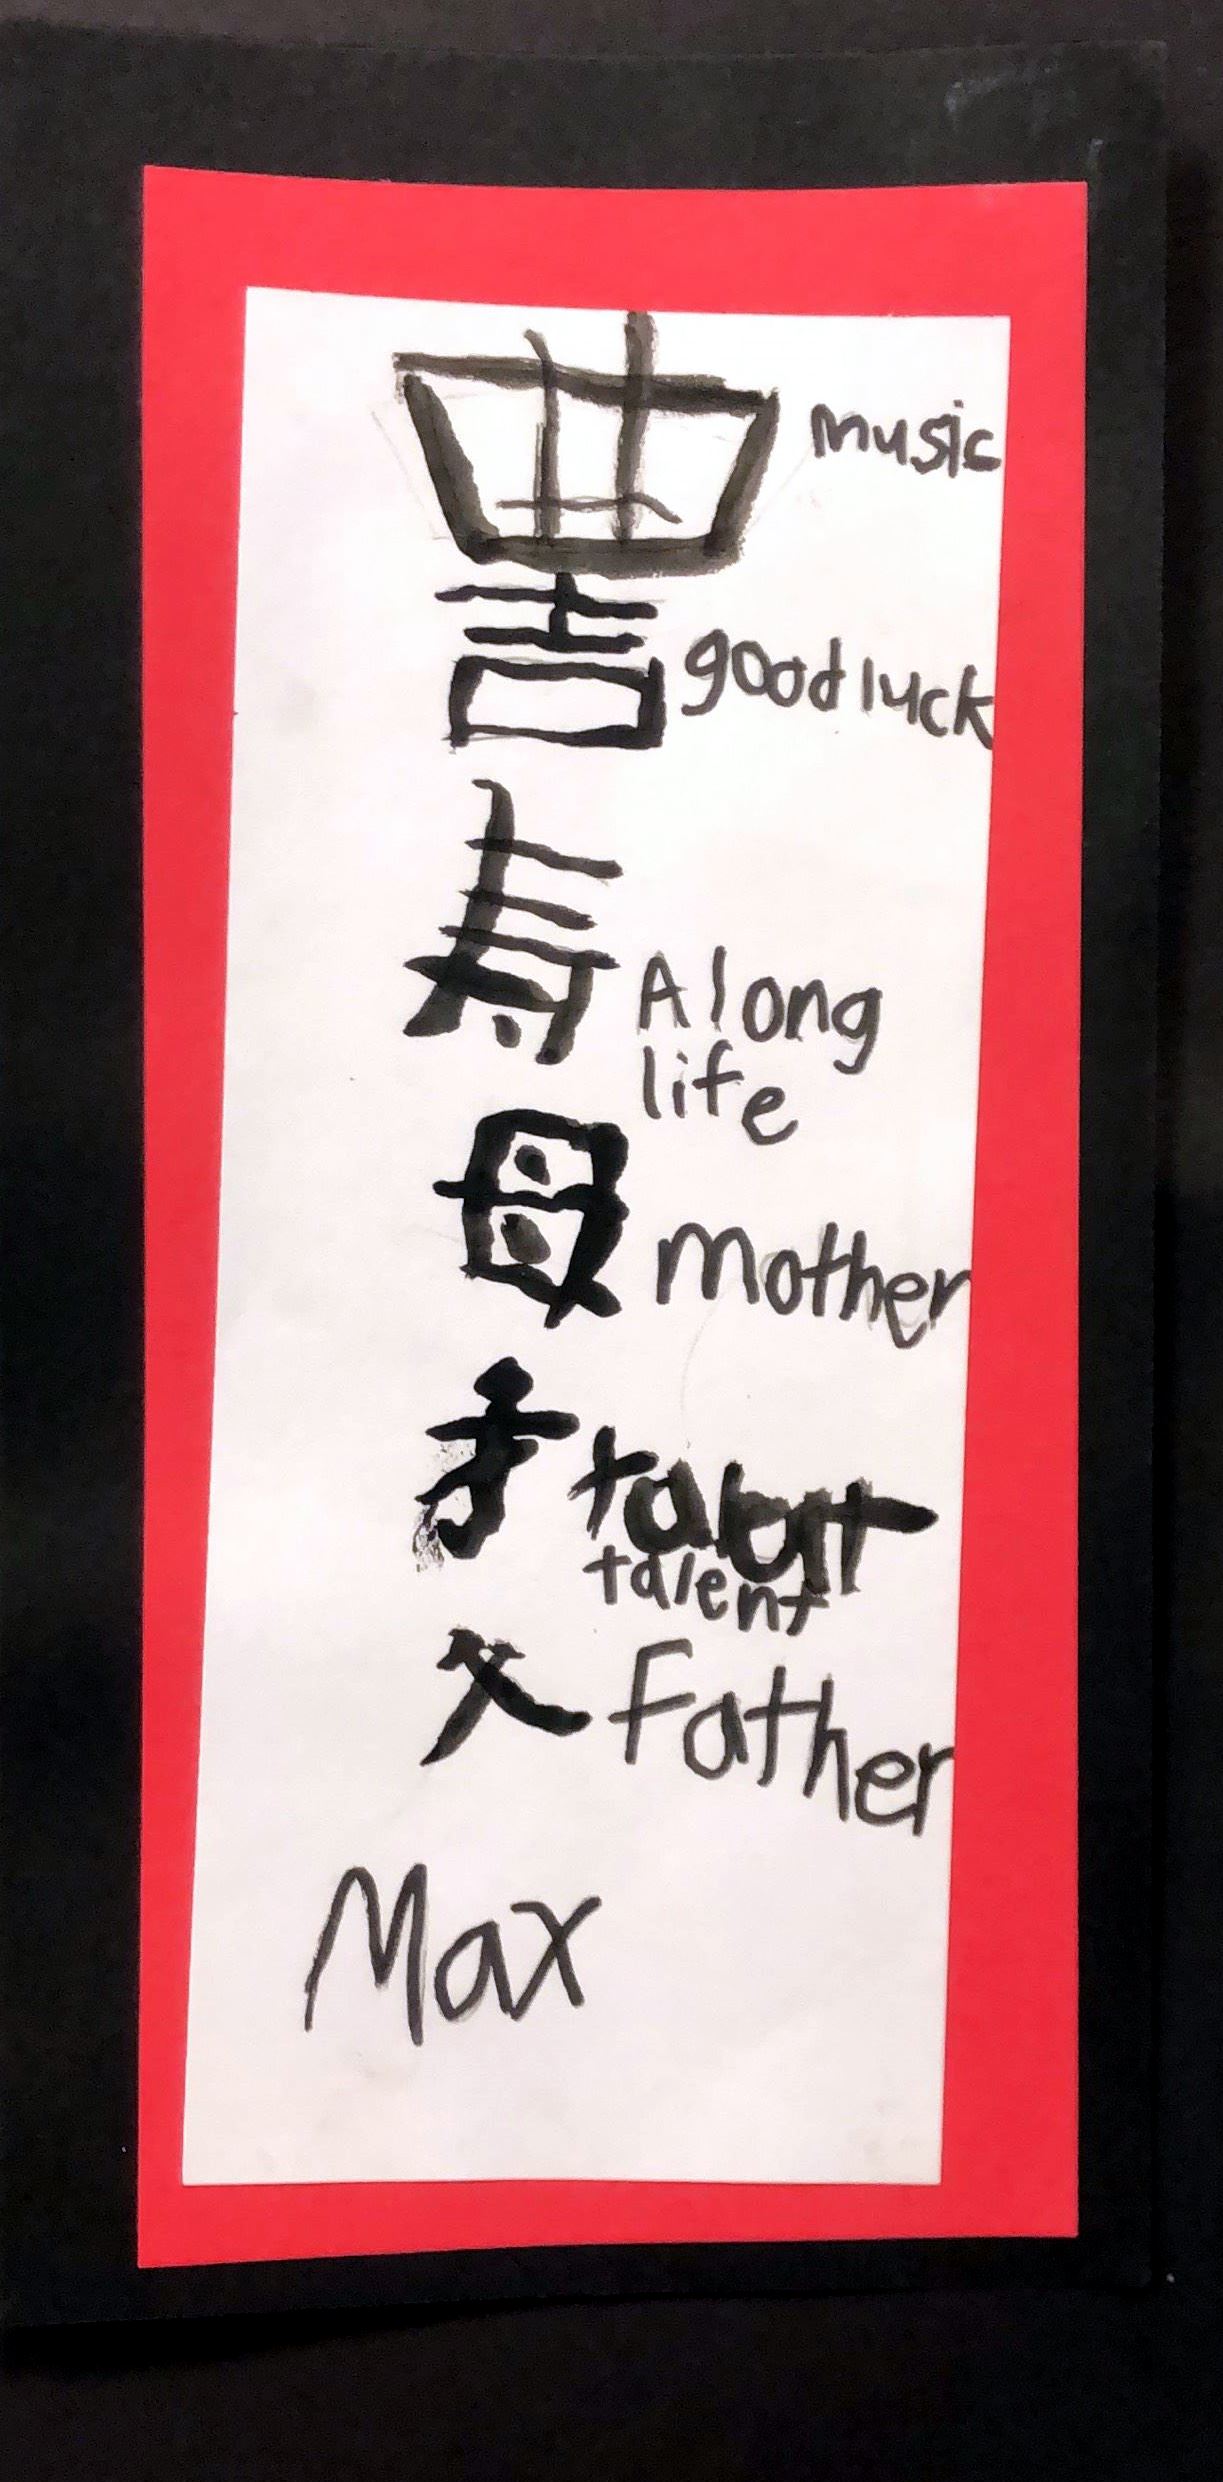 曲 music
吉 good luck
寿 A long
life
母 mother
才 talent
talent
父 Father
Max